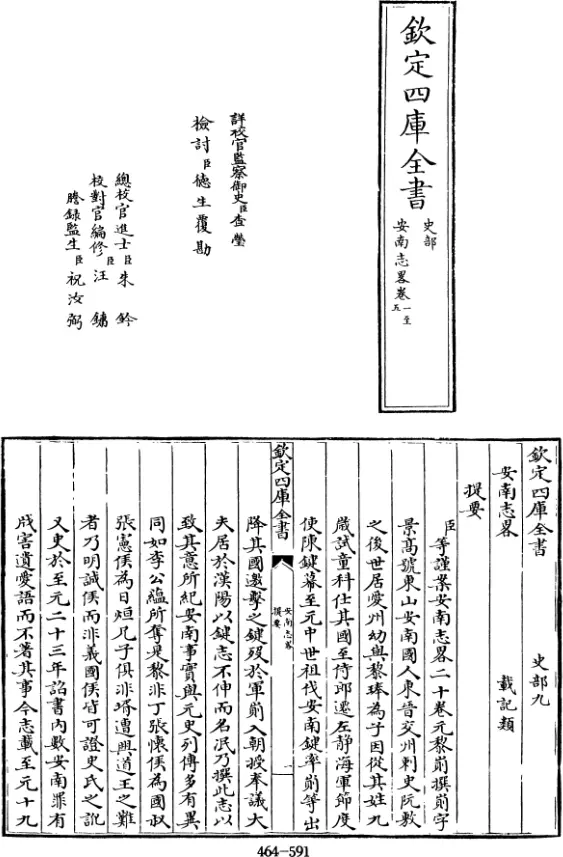 欽定四庫全書
史部
安南志畧卷一至五
詳校官監察御史臣查瑩
檢討臣德生覆勘
總校官進士臣朱鈐
校對官編修臣汪鏞
謄錄監生臣祝汝弼
欽定四庫全書
史部九
安南志畧
載記類
提要
臣等謹案安南志畧二十卷元黎崱撰崱字
景高號東山安南國人東晉交州刺史阮敷
之後世居愛州幼與黎琫為子因從其姓九
歲試童科仕其國至侍郎遷左静海軍節度
使陳鍵幕至元中世祖伐安南鍵率崱等出
降其國邀擊之鍵歿於軍崱入朝授奉議大
夫居於漢陽以鍵志不伸而名泯乃撰此志以
致其意所紀安南事實與元史列傳多有異
同如李公藴所奪是黎非丁張懷侯為國叔
張憲侯為日烜兄子俱非壻遭興道王之難
者乃明誠侯而非義國侯皆可證史氏之訛
又史於至元二十三年詔書内數安南罪有
戕害遺愛語而不著其事今志載至元十九
欽定四庫全書
安南志畧
提要
一
464-591